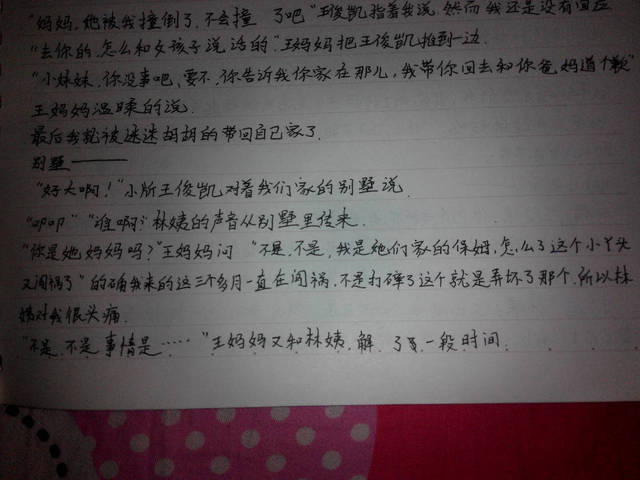 "妈妈,她被我撞倒了,不会撞 了吧"王俊凯指着我说.然而我还是没有回应
"去你的,怎么和女孩子说话的"王妈妈把王俊凯推到一边.
"小妹妹,你没事吧,要不,你告诉我你家在那儿,我带你回去和你爸妈道个歉"
王妈妈温暖的说.
最后我就被迷迷胡胡的带回自己家了.
别墅——
"好大啊!"小所王俊凯对着我们家的别墅说.
"叩叩""谁啊?"林姨的声音从别墅里传来.
"你是她妈妈吗?"王妈妈问 "不是,不是,我是她们家的保姆,怎么了这个小丫头
又闯祸了"的确我来的这三个多月一直在闯祸,不是打碎了这个就是弄坏了那个,所以林
姨对我很头痛.
"不是.不是事情是……"王妈妈又和林姨.解 了 一段时间.